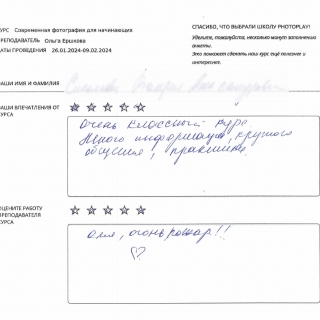 КУРС Современная фотография для начинающих
ПРЕПОДАВАТЕЛЬ Ольга Ершкова
ДАТЫ ПРОВЕДЕНИЯ 26.01.2024-09.02.2024
СПАСИБО, ЧТО ВЫБРАЛИ ШКОЛУ PHOTOPLAY!
Уделите, пожалуйста, несколько минут заполнению анкеты.
Это поможет сделать наш курс ещё полезнее и интереснее.
ВАШИ ИМЯ И ФАМИЛИЯ
ВАШИ ВПЕЧАТЛЕНИЯ ОТ
КУРСА
Очень классный курс
Много информации, крутого
общения, практики.
ОЦЕНИТЕ РАБОТУ
ПРЕПОДАВАТЕЛЯ
КУРСА
Оля, огонь пожар!!